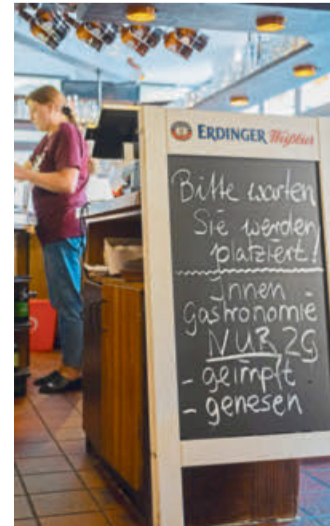 ERDINGER Weißbier
Bitte warten
Sie werden
platziert!
Innen
gastronomie
NUR 2G
- geimpft
- genesen